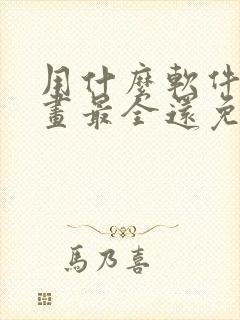 用什麼軟件
畫最全還免
馬乃喜